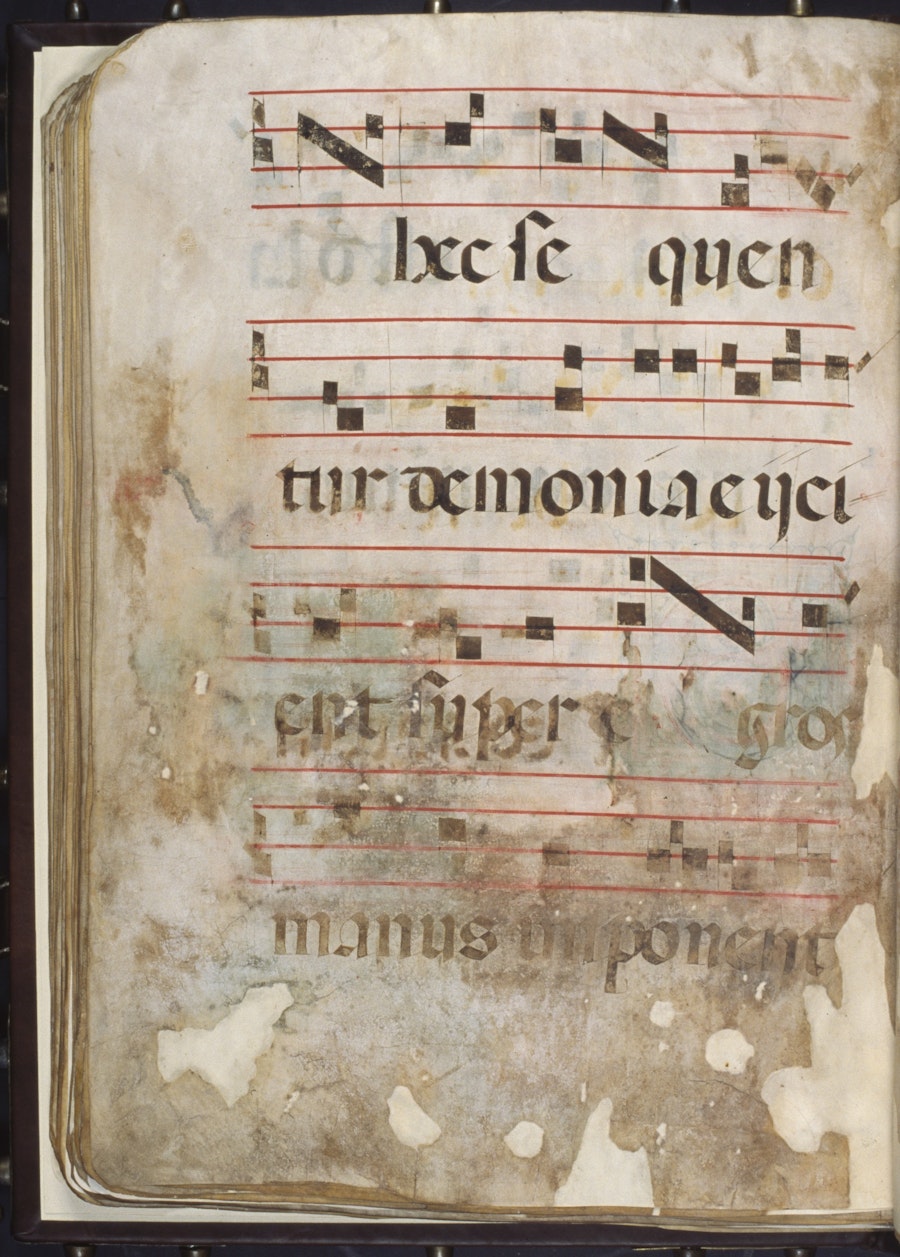 hæc se quen
tur dæmonia eijci
ent super e gros
manus imponent